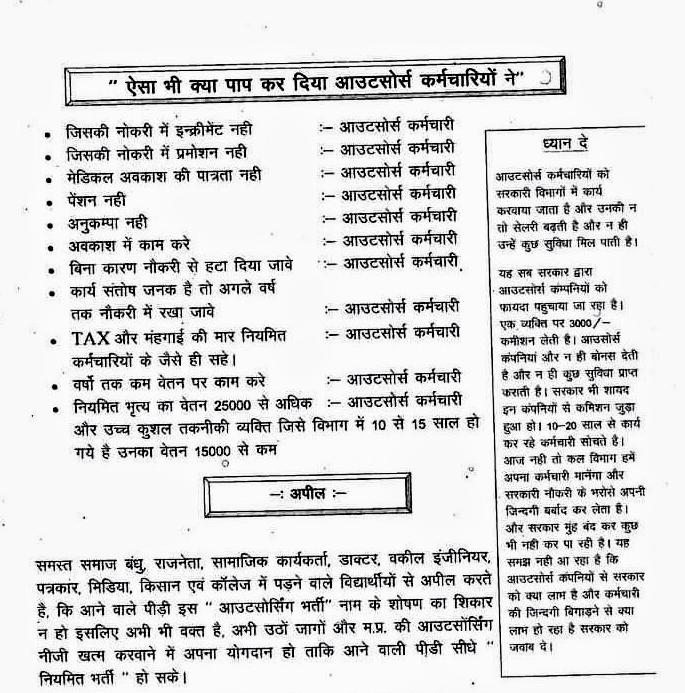 " ऐसा भी क्या पाप कर दिया आउटसोर्स कर्मचारियों ने"
• जिसकी नोकरी में इन्क्रीमेंट नही :– आउटसोर्स कर्मचारी
• जिसकी नोकरी में प्रमोशन नही :– आउटसोर्स कर्मचारी
• मेडिकल अवकाश की पात्रता नही :– आउटसोर्स कर्मचारी
• पेंशन नही :– आउटसोर्स कर्मचारी
• अनुकम्पा नही :– आउटसोर्स कर्मचारी
• अवकाश में काम करे :– आउटसोर्स कर्मचारी
• बिना कारण नौकरी से हटा दिया जावे :– आउटसोर्स कर्मचारी
• कार्य संतोष जनक है तो अगले वर्ष
तक नौकरी में रखा जावे :– आउटसोर्स कर्मचारी
• TAX और मंहगाई की मार नियमित :– आउटसोर्स कर्मचारी
कर्मचारियों के जैसे ही सहे।
• वर्षो तक कम वेतन पर काम करे :– आउटसोर्स कर्मचारी
• नियमित भृत्य का वेतन 25000 से अधिक :– आउटसोर्स कर्मचारी
और उच्च कुशल तकनीकी व्यक्ति जिसे विभाग में 10 से 15 साल हो
गये है उनका वेतन 15000 से कम
–: अपील :–
समस्त समाज बंधु, राजनेता, सामाजिक कार्यकर्ता, डाक्टर, वकील इंजीनियर,
पत्रकार, मिडिया, किसान एवं कॉलेज में पड़ने वाले विद्यार्थीयों से अपील करते
है, कि आने वाले पीड़ी इस " आउटसोर्सिंग भर्ती" नाम के शोषण का शिकार
न हो इसलिए अभी भी वक्त है, अभी उठों जागों और म.प्र. की आउटसॉर्सिंग
नीजी खत्म करवाने में अपना योगदान हो ताकि आने वाली पीडी सीधे "
नियमित भर्ती " हो सके।
ध्यान दे
आउटसोर्स कर्मचारियों को
सरकारी विभागों में कार्य
करवाया जाता है और उनकी न
तो सेलरी बढ़ती है और न ही
उन्हें कुछ सुविधा मिल पाती है।
यह सब सरकार द्वारा
आउटसोर्स कंम्पनियों को
फायदा पहुचाया जा रहा है।
एक व्यक्ति पर 3000/–
कमीशन लेती है। आउसोर्स
कंपनिया और न ही बोनस देती
है और न ही कुछ सुविधा प्राप्त
कराती है। सरकार भी शायद
इन कंपनियों से कमिशन जुड़ा
हुआ हो। 10–20 साल से कार्य
कर रहे कर्मचारी सोचते है।
आज नही तो कल विभाग हमें
अपना कर्मचारी मानेंगा और
सरकारी नौकरी के भरोसे अपनी
जिन्दगी बर्बाद कर लेता है।
और सरकार मुंह बंद कर कुछ
भी नही कर पा रही है। यह
समझ नही आ रहा है कि
आउटसोर्स कंपनियों से सरकार
को क्या लाभ है और कर्मचारी
की जिन्दगी बिगाड़ने से क्या
लाभ हो रहा है सरकार को
जवाब दे।